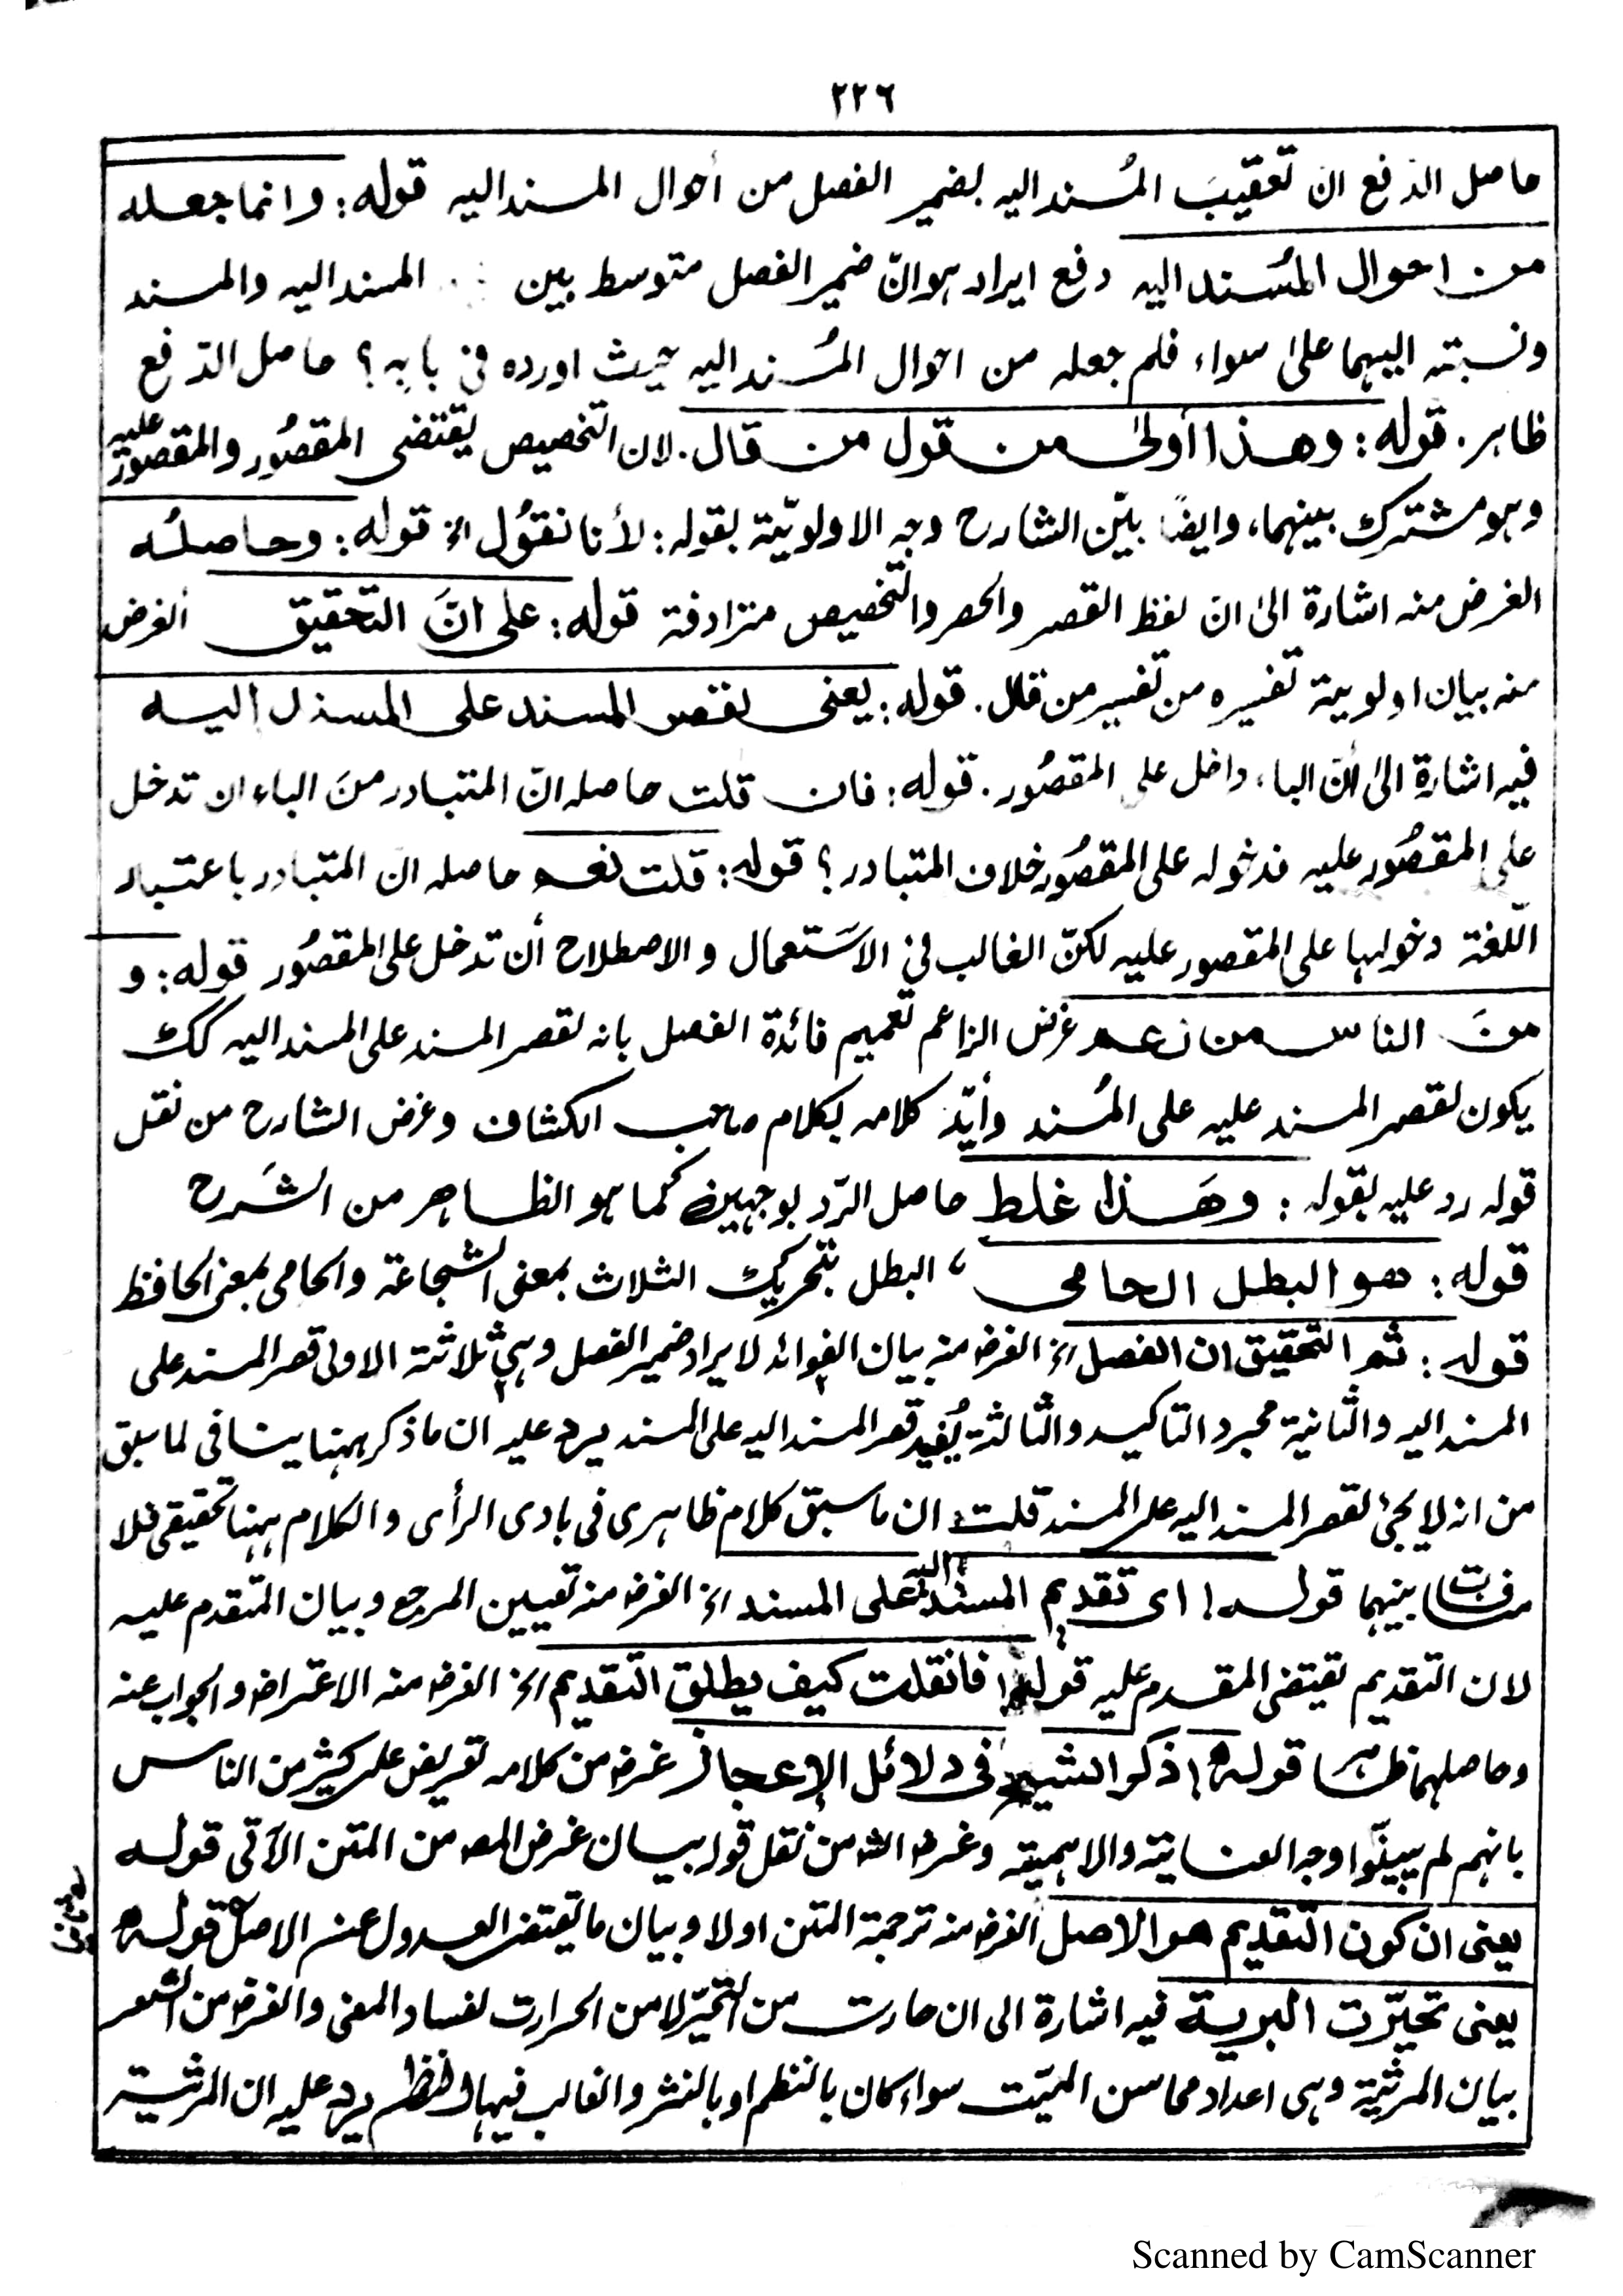 ٢٢٦
حاصل الدفع ان تعقيبَ المُسند اليه بضمير الفصل من أحوال المسند اليه قوله: وانما جعله
من احوال المُسَند اليه دفع ايراد هو انّ ضمير الفصل متوسط بين المسند اليه والمسند
ونسبته اليهما علىٰ سواء فلم جعله من احوال المُسند اليه حيث اورده فى بابه؟ حاصل الدفع
ظاهر. قوله: وهذا أولىٰ من قول من قال. لان التخصيص يقتضى المقصُور والمقصور عليه
وهو مشترك بينهما، وايضًا بيّن الشارح وجه الاولويّة بقوله: لأنا نقُول الخ قوله: وحاصلُه
الغرض منه اشارة الىٰ ان لفظ القصر والحصر والتخصيص مترادفة قوله: على انَّ التحقيق الغرض
منه بيان اولوية تفسيره من تفسير من قال. قوله: يعنى لقصر المسند على المسند اليه
فيه اشارة الىٰ أنّ الباء داخل على المقصُور. قوله: فان قلت حاصله انّ المتبادر منَ الباء ان تدخل
على المقصُور عليه فدخوله على المقصُور خلاف المتبادر؟ قوله: قلت نعم حاصله ان المتبادر باعتبار
اللّغة دخولها على المقصور عليه لكنّ الغالب فى الاسَتعمال والاصطلاح أن تدخل على المقصُور قوله: و
منَ الناس من زعم غرض الزاعم تعميم فائدة الفصل بانه لقصر المسند على المسند اليه كك
يكون لقصر المسند عليه على المُسند وأيّد كلامه بكلام صاحب الكشاف وغرض الشارح من نقل
قوله رد عليه بقوله: وهَذا غلط حاصل الرّد بوجهين كما هو الظاهر من الشَرح
قوله: هو البطل الحامى، البطل بتحريك الثلاث بمعنى الشجاعة والحامى بمعنى الحافظ
قوله: ثم التحقيق ان الفصل الخ الغرض منه بيان الفوائد لايراد ضمير الفصل وهى ثلاثة الاولى قصر المسند على
المسند اليه والثانية مجرد التاكيد والثالثة يُفيد قصر المسند اليه على المسند يرد عليه ان ما ذكر ههنا ينافى لما سبق
من انه لا يجئ لقصر المسند اليه على المسند قلت ان ما سبق كلام ظاهرى فى بادى الرأى والكلام ههنا تحقيقى فلا
منافات بينهما قوله! اى تقديم المسند اليه على المسند الخ الغرض منه تعيين المرجع وبيان المتقدم عليه
لان التقديم تقتضى المقدم عليه قوله! فانقلت كيف يطلق التقديم الخ الغرض منه الاعتراض والجواب عنه
وحاصلهما ظاهر قوله! ذكر الشيخ فى دلائل الإعجاز غرضه من كلامه تعريض على كثير من الناس
بانهم لم يبينّوا وجه العناية والاهمية وغرض الشه من نقل قوله بيان غرض المصه من المتن الآتى قوله
يعنى ان كون التقديم هو الاصل الغرض منه ترجمة المتن اولا وبيان ما تقتضى العدول عنه الاصل قوله
يعنى تحيّرت البرية فيه اشارة الى ان حارت من التحيّر لا من الحرارت لفساد المعنى والغرض من الشعر
بيان المرثية وهى اعداد محاسن الميّت سواء كان بالنظم او بالنثر والغالب فيها النظم يرد عليه ان المرثية
Scanned by CamScanner